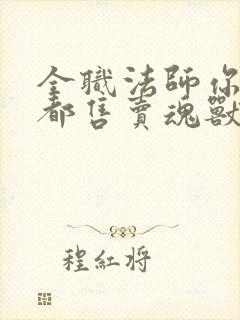 全職法師你
都售賣魂獸
程紅將